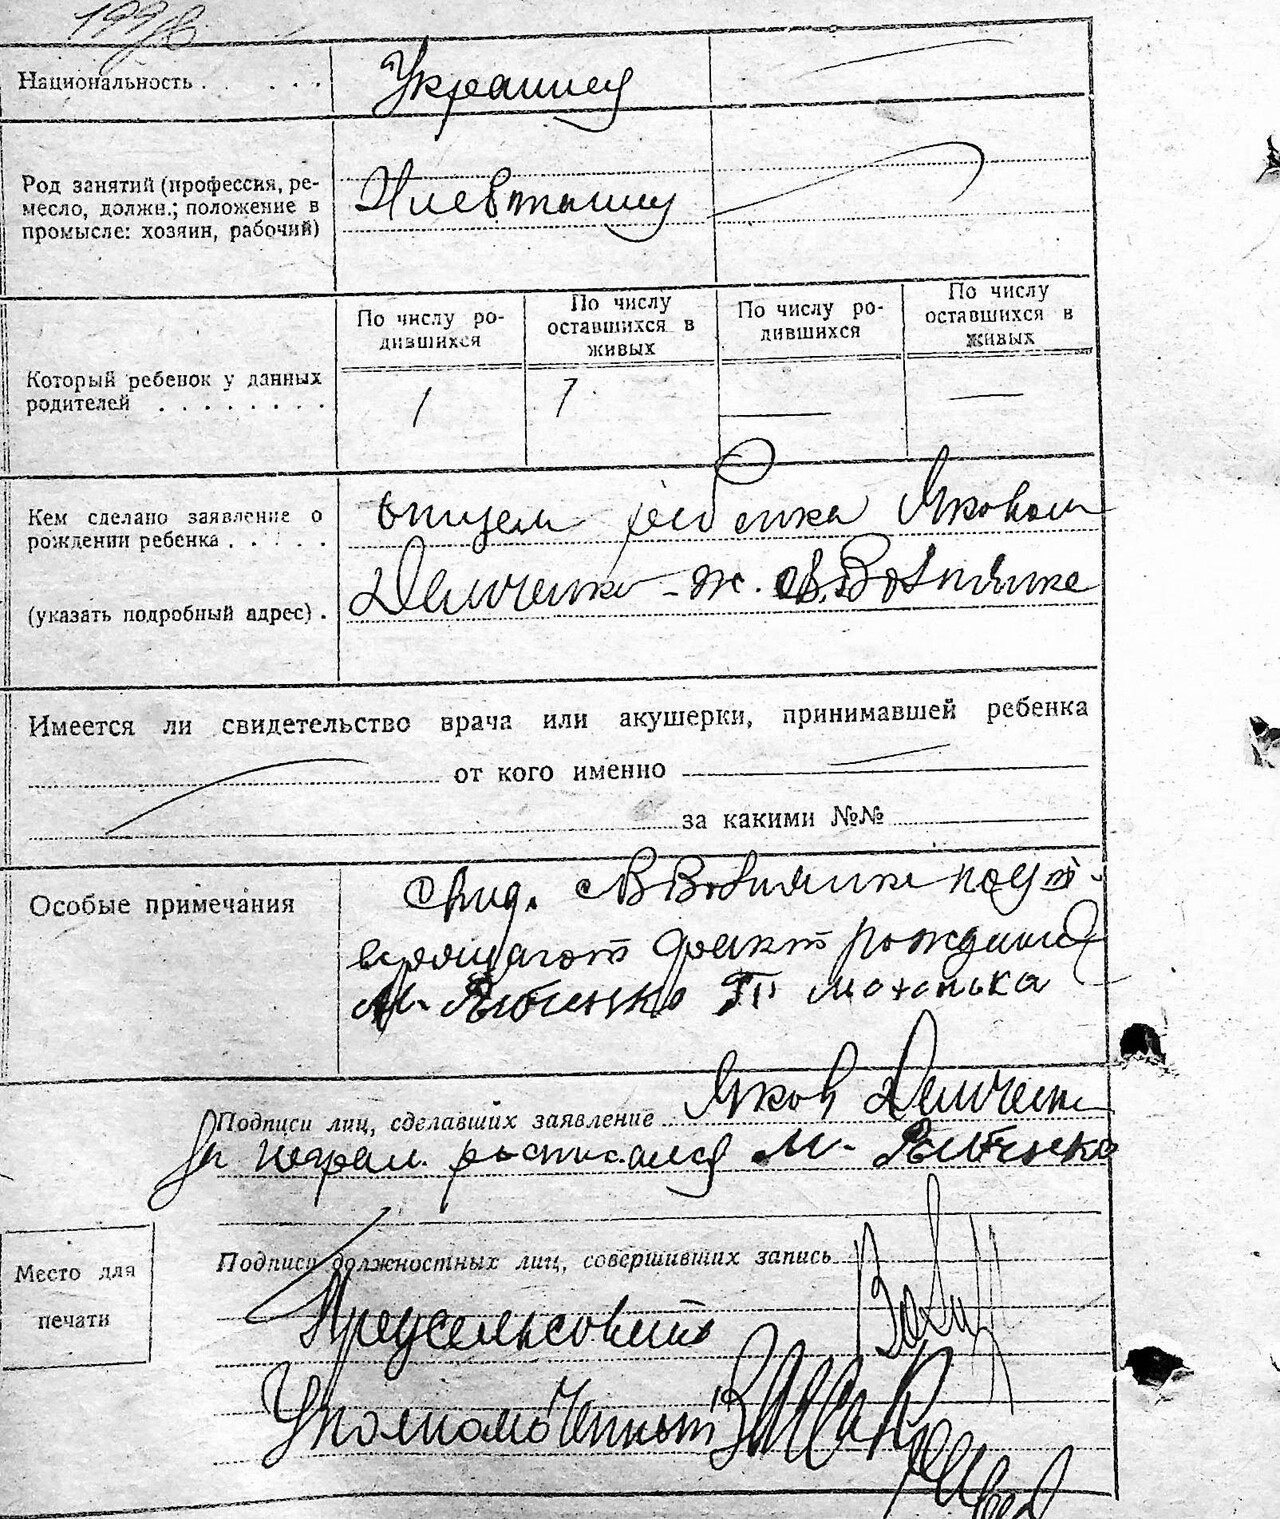 Национальность . . . . . Украинец
Род занятий (профессия, ре-
месло, должн.; положение в
промысле: хозяин, рабочий)
Хлевтанец
По числу ро-
дившихся
По числу
оставшихся в
живых
По числу ро-
дившихся
По числу
оставшихся в
живых
Который ребенок у данных
родителей . . . . . . . .
1 1
Кем сделано заявление о
рождении ребенка . . . . .
(указать подробный адрес) .
отцем ребенка Яковом
Демченко - ж. с. В.
Имеется ли свидетельство врача или акушерки, принимавшей ребенка
от кого именно
за какими №№
Особые примечания
Свид. с. В
факт рождения
М.
Подписи лиц, сделавших заявление Яков Демченко
За неграм. росписался М.
Подписи должностных лиц, совершивших запись
Место для
печати
Предсельсовета
Уполномоченный